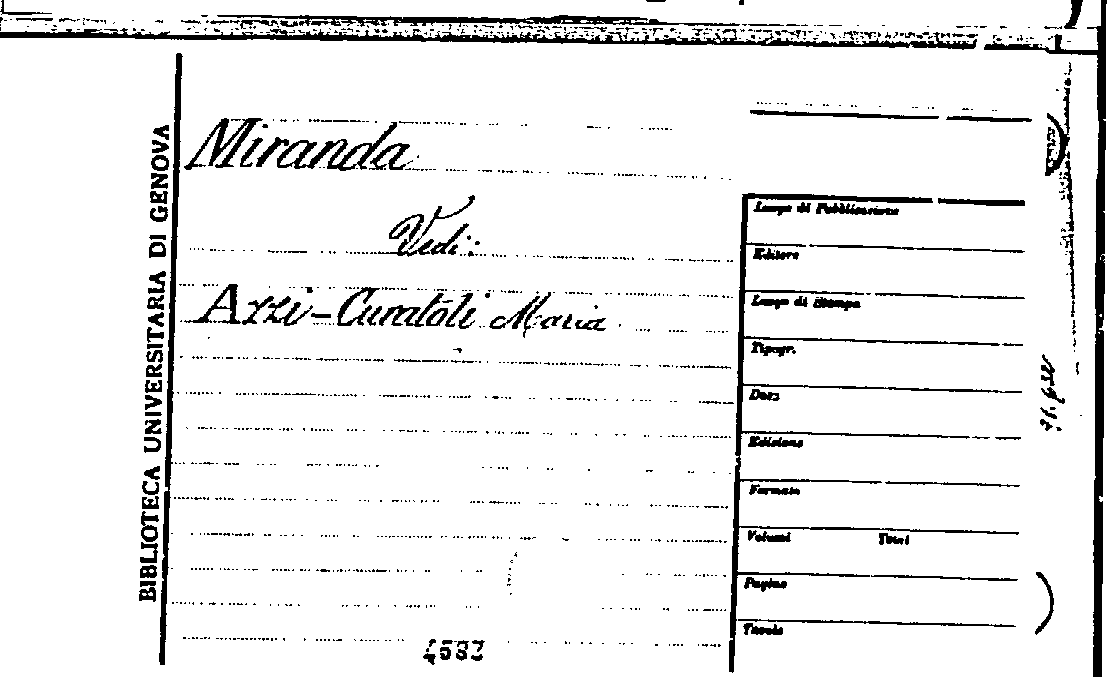 BIBLIOTECA UNIVERSITARIA DI GENOVA
Miranda
Vedi:
Azzi-Curatoli Maria
Luogo di Pubblicazione
Editore
Luogo di Stampa
Tipogr.
Data
Edizione
Formato
Volumi Tomi
Pagine
Tavole